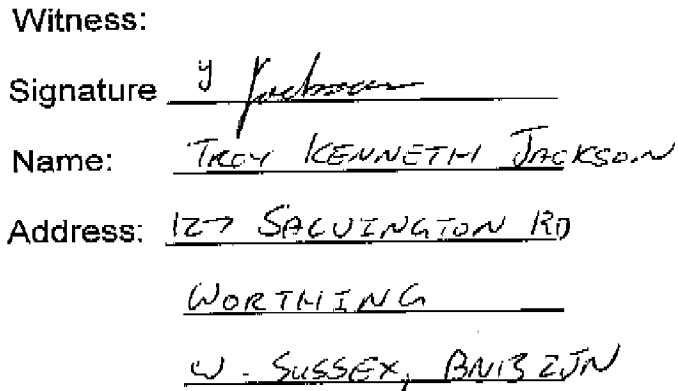 Witness:
Signature
Name: TROY KENNETH JACKSON
Address: 127 SALVINGTON RD
WORTHING
W. SUSSEX, BN13 2JN